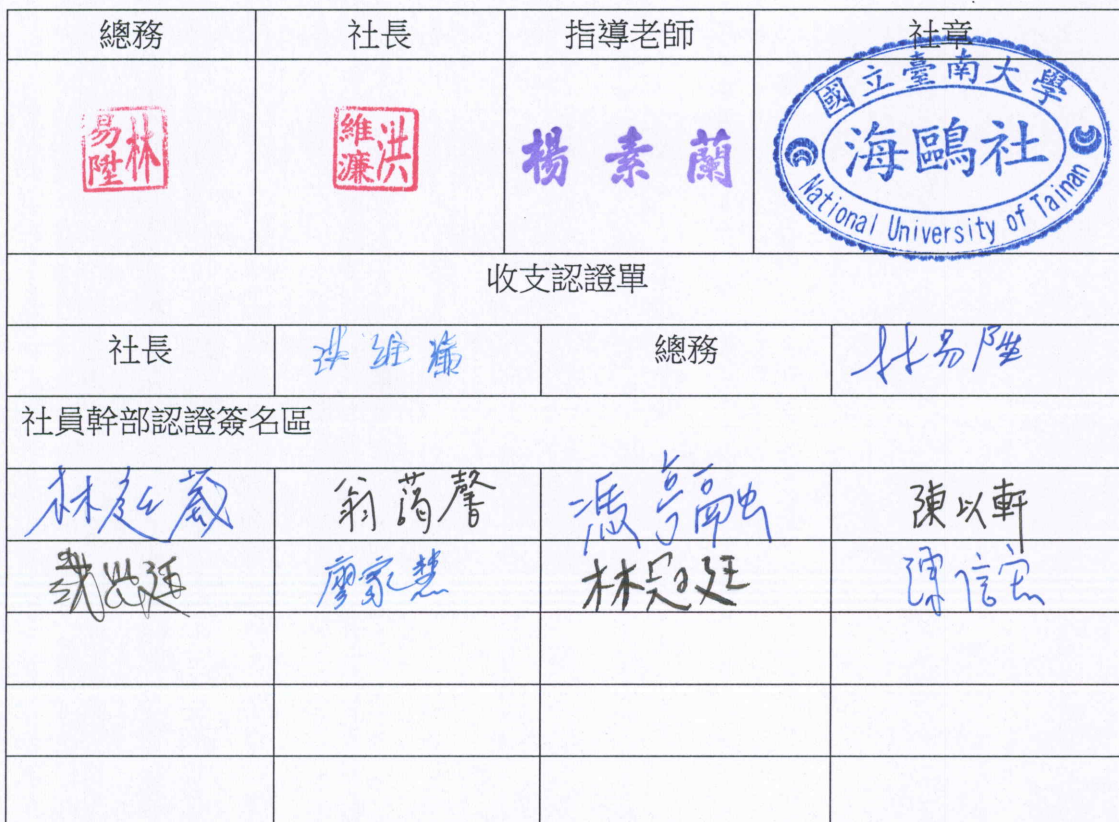 總務 社長 指導老師 社章
林易陞 洪維濂 楊素蘭 國立臺南大學 海鷗社 National University of Tainan
收支認證單
社長 洪維濂 總務 林易陞
社員幹部認證簽名區
翁蒟馨 馮亨融 陳以軒
廖家慧 林冠廷 陳信宏